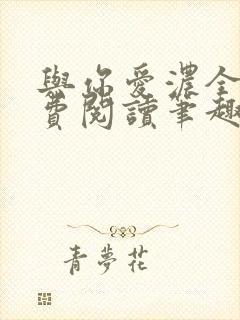 與你愛濃全
費閱讀筆趣
青夢花